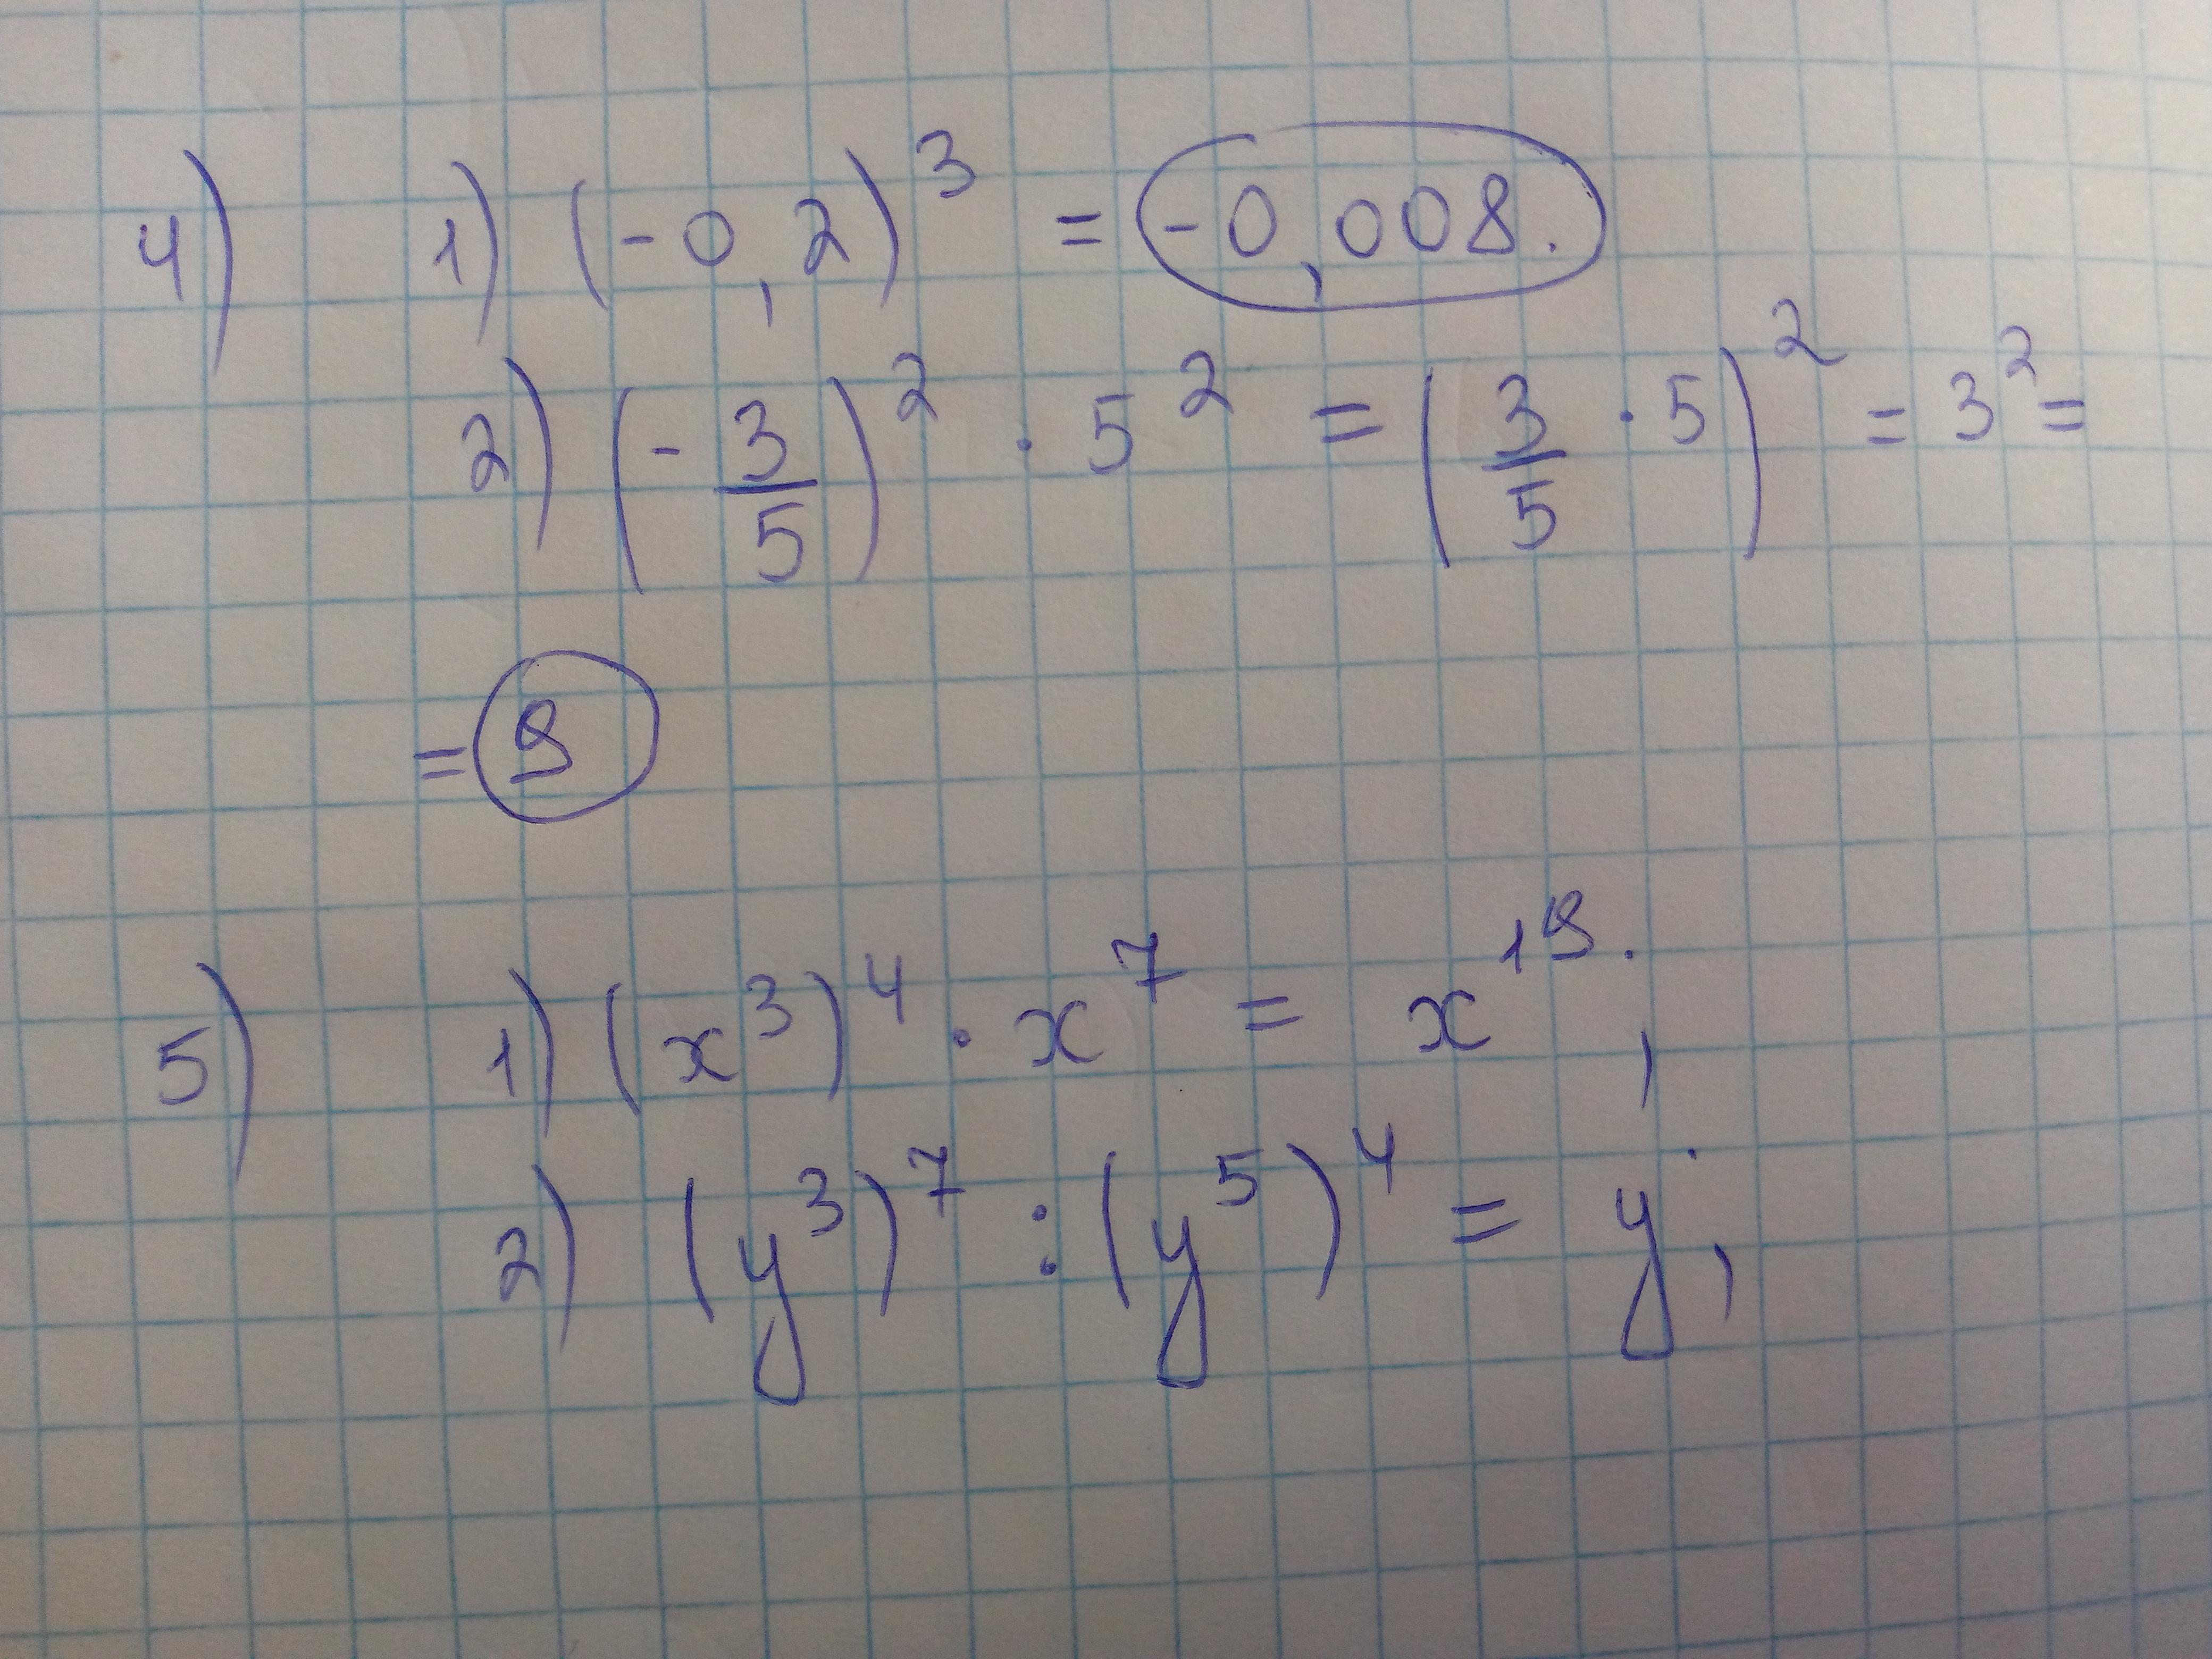 4) 1) (-0,2)³ = -0,008.
2) (-3/5)² · 5² = (3/5 · 5)² = 3² =
= 9
5) 1) (x³)⁴ · x⁷ = x¹⁹;
2) (y³)⁷ : (y⁵)⁴ = y;